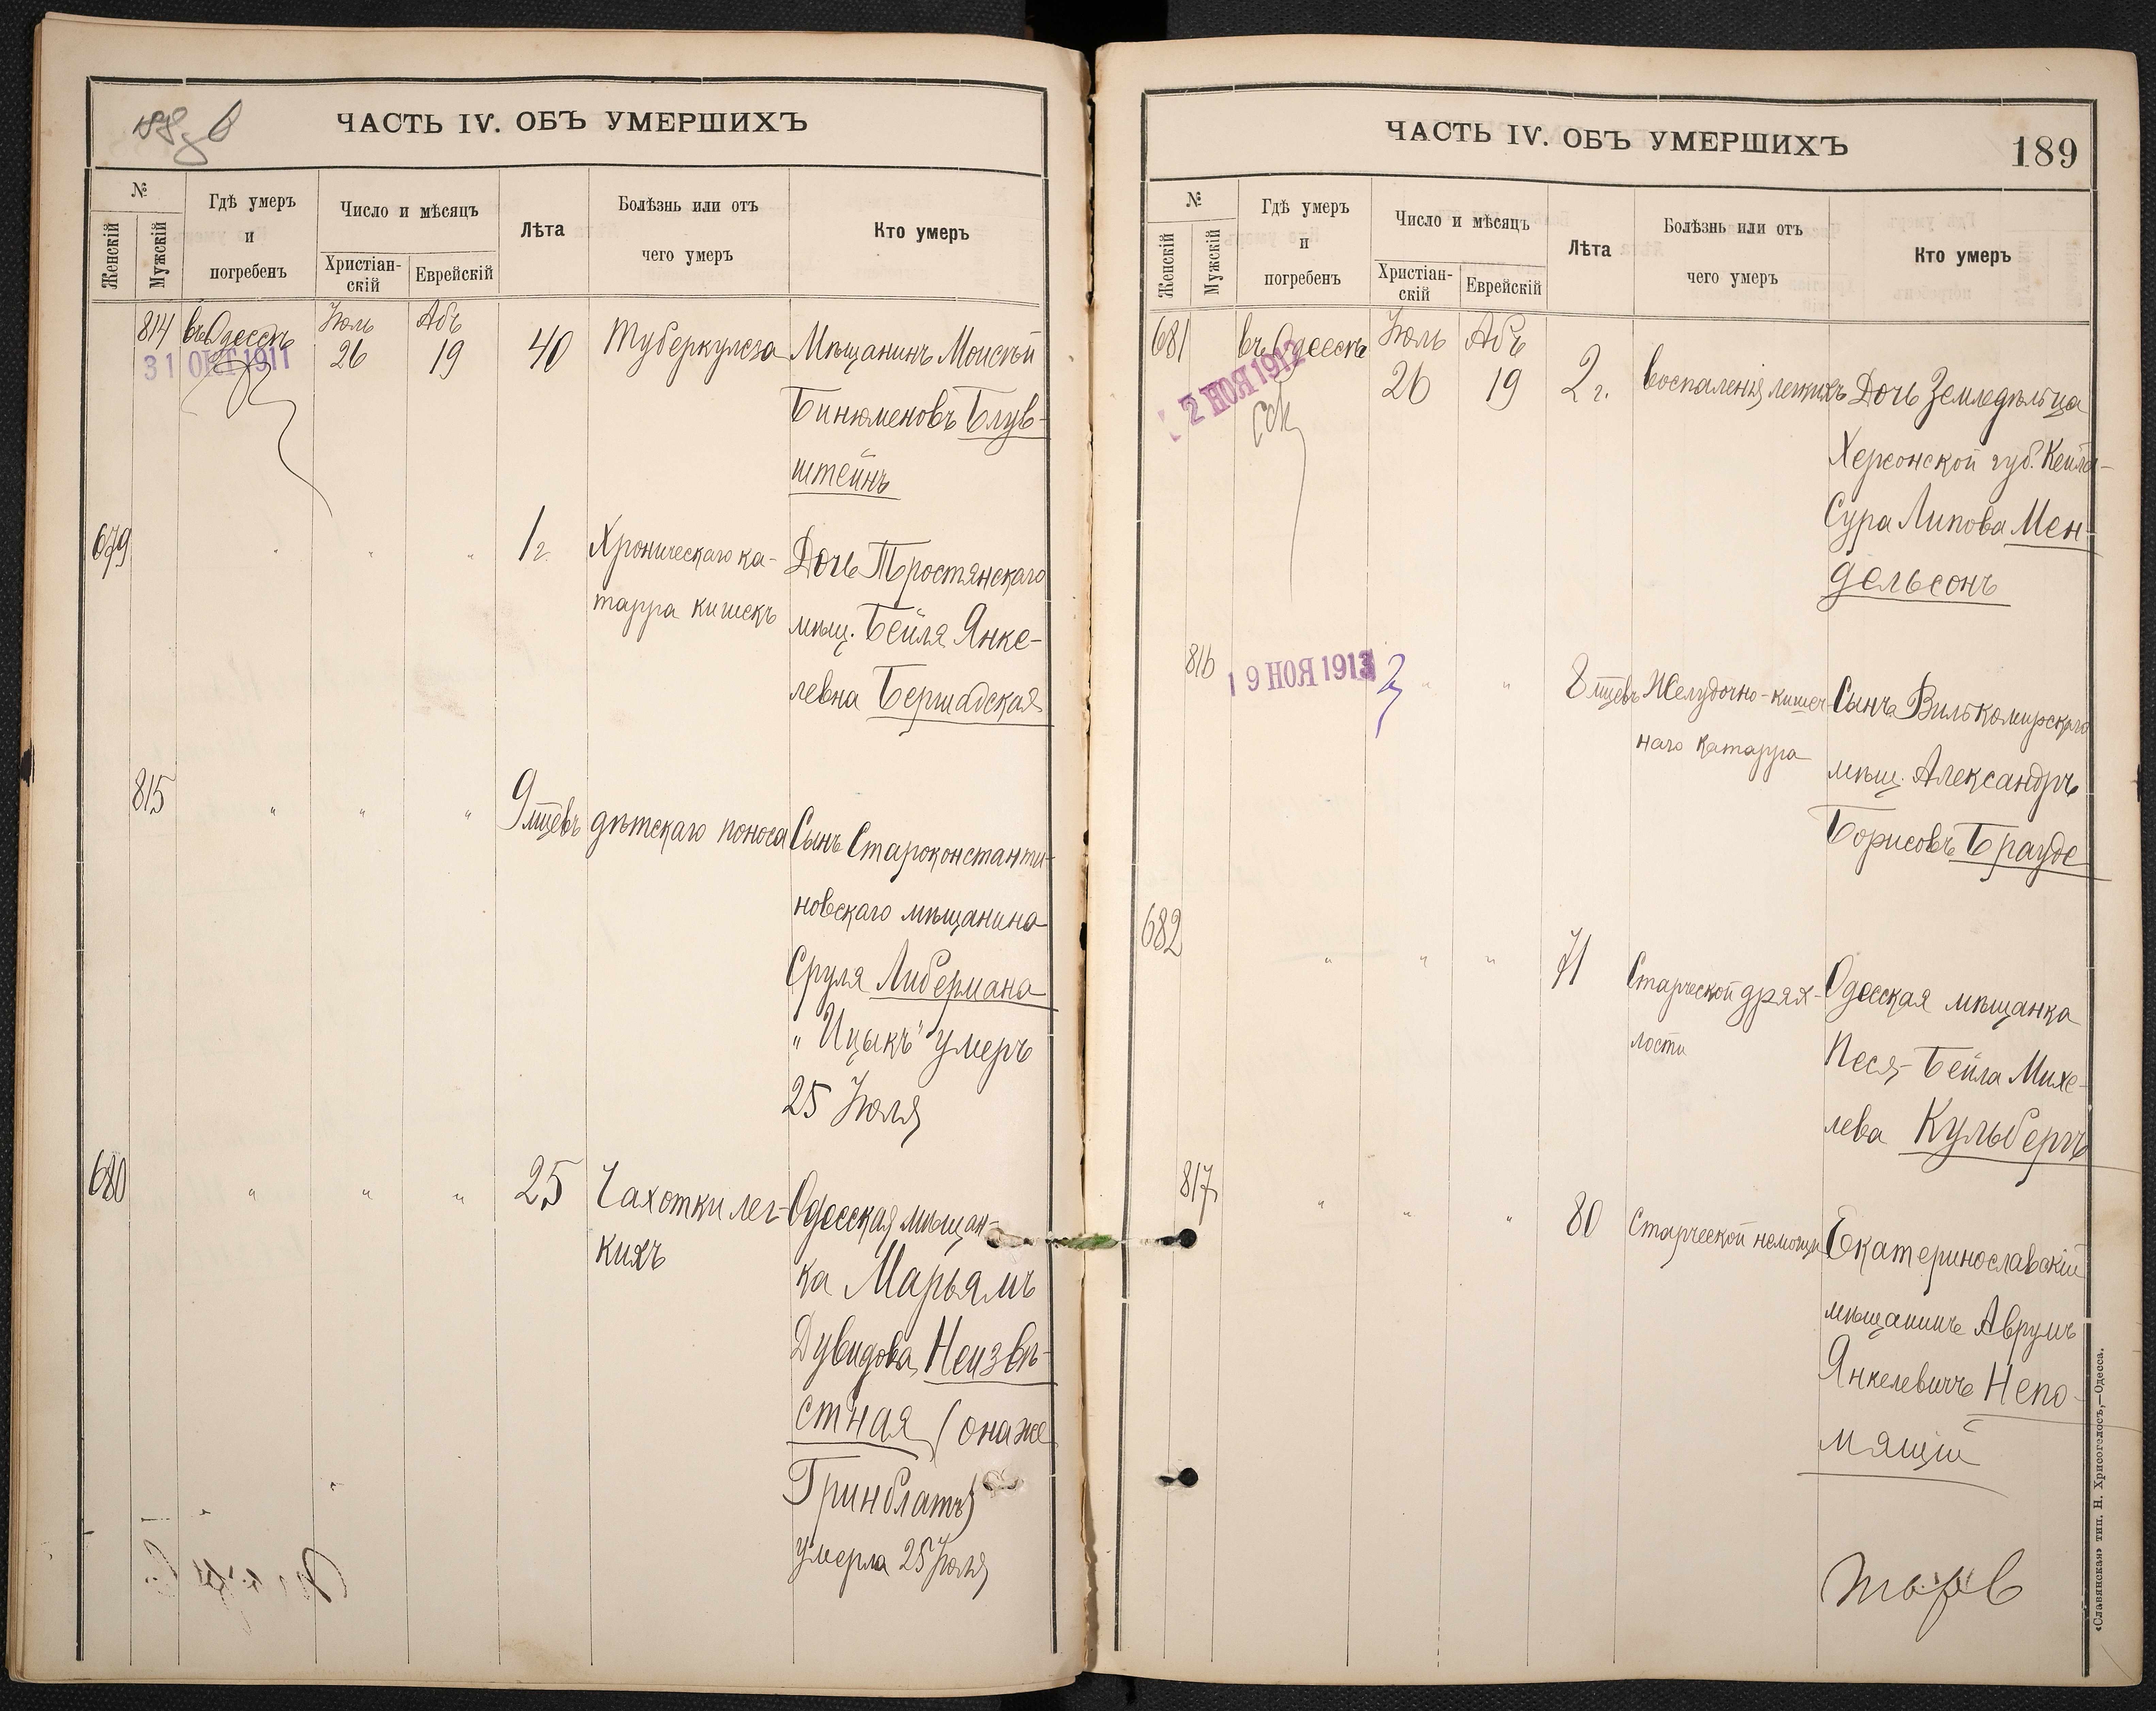 ЧАСТЬ IV. ОБЪ УМЕРШИХЪ
№
Женскій
Мужскій
Гдѣ умеръ
и
погребенъ
Число и мѣсяцъ
Христіан-
скій
Еврейскій
Лѣта
Болѣзнь или отъ
чего умеръ
Кто умеръ
814 въ Одессѣ Іюль 26 Абъ 19 40 Туберкулеза Мѣщанинъ Моисѣй
31 ОКТ 1911
Бинюменовъ Блув-
штейнъ
679 " " " 1 г. Хроническаго ка- Дочь Тростянскаго
тарра кишекъ мѣщ. Бейля Янке-
левна Бершадская
815 " " " 9 мцевъ дѣтскаго поноса Сынъ Староконстанти-
новскаго мѣщанина
Сруля Либермана
"Ицыкъ" умеръ
25 Іюля
680 " " " 25 Чахотки лег- Одесская мѣщан-
кихъ ка Марьямъ
Дувидова Неизвѣ-
стная (она же
Гринблатъ)
умерла 25 Іюля
ЧАСТЬ IV. ОБЪ УМЕРШИХЪ
189
№
Женскій
Мужскій
Гдѣ умеръ
и
погребенъ
Число и мѣсяцъ
Христіан-
скій
Еврейскій
Лѣта
Болѣзнь или отъ
чего умеръ
Кто умеръ
681 въ Одессѣ Іюль 26 Абъ 19 2 г. воспаленія легкихъ Дочь Земледѣльца
2 НОЯ 1912
Херсонской губ. Кейла-
Сура Липова Мен-
дельсонъ
816 19 НОЯ 1913 " " 8 мцевъ Желудочно-кишеч- Сынъ Вилькомирскаго
наго катарра мѣщ. Александръ
Борисовъ Брауде
682 " " " 71 Старческой дрях- Одесская мѣщанка
лости Песя-Бейла Михе-
лева Кульбергъ
817 " " " 80 Старческой немощи Екатеринославскій
мѣщанинъ Аврумъ
Янкелевичъ Непо-
мящій
«Славянская» тип. Н. Хрисогелосъ,—Одесса.